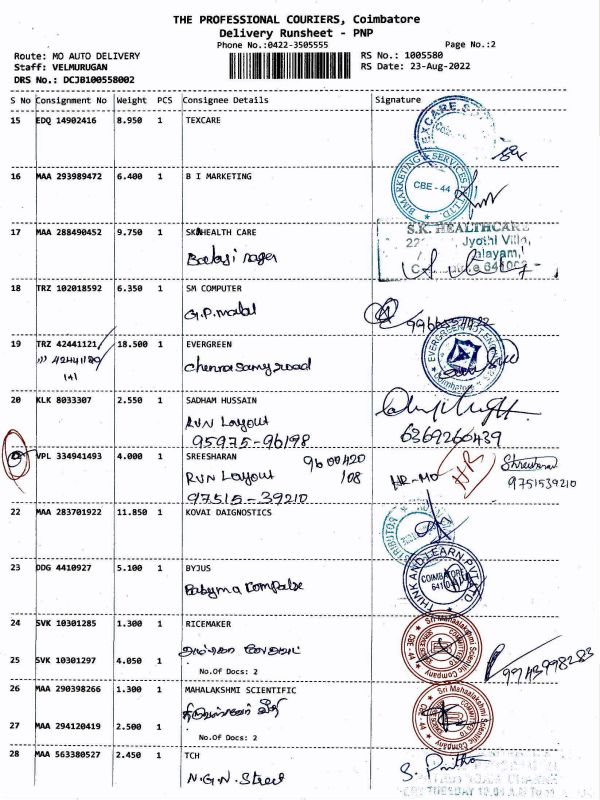 THE PROFESSIONAL COURIERS, Coimbatore
Delivery Runsheet - PNP
Phone No.:0422-3505555
Page No.:2
Route: MO AUTO DELIVERY
RS No.: 1005580
Staff: VELMURUGAN
RS Date: 23-Aug-2022
DRS No.: DCJB100558002
S No Consignment No Weight PCS Consignee Details Signature
15 EDQ 14902416 8.950 1 TEXCARE
16 MAA 293989472 6.400 1 B I MARKETING
BIMARKETING & SERVICES
CBE - 44
17 MAA 288490452 9.750 1 SK HEALTH CARE
S.K. HEALTHCARE
Jyothi Villa,
18 TRZ 102018592 6.350 1 SM COMPUTER
G.P.
19 TRZ 42441121 18.500 1 EVERGREEN
EVERGREEN
Coimbatore
20 KLK 8033307 2.550 1 SADHAM HUSSAIN
RVN Layout
95975-96198
6369266439
VPL 334941493 4.000 1 SREESHARAN
9600420
/08
RVN Layout
HR-MO
HR
97515-39210
9751539210
22 MAA 283701922 11.850 1 KOVAI DAIGNOSTICS
23 DDG 4410927 5.100 1 BYJUS
THINK AND LEARN PVT LTD
COIMBATORE
24 SVK 10301285 1.300 1 RICEMAKER
Sri Mahaalakshmi Scientific Company
CBE
25 SVK 10301297 4.050 1
No.Of Docs: 2
9943998283
26 MAA 290398266 1.300 1 MAHALAKSHMI SCIENTIFIC
Sri Mahaalakshmi Scientific Company
27 MAA 294120419 2.500 1
No.Of Docs: 2
28 MAA 563380527 2.450 1 TCH
N.G.N. Street